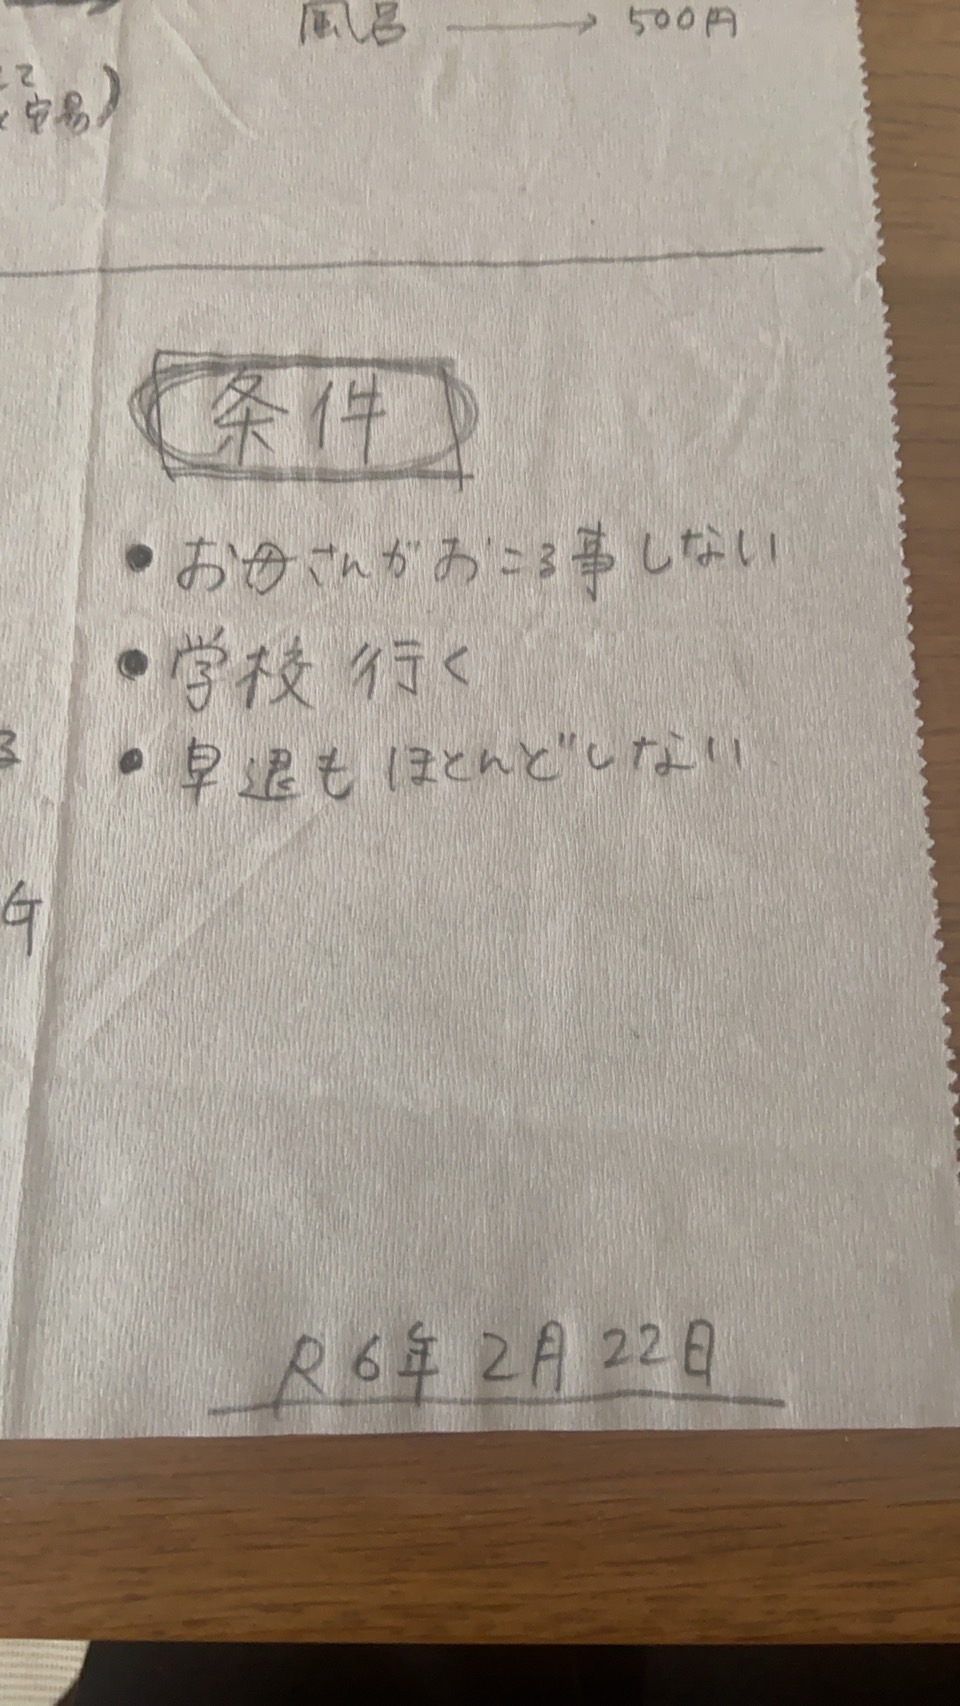 風呂 → 500円
条件
・お母さんがおこる事しない
・学校 行く
・早退もほとんどしない
R6年2月22日